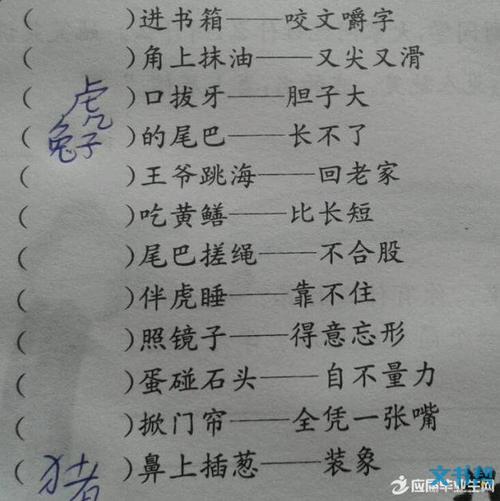 (      )进书箱——咬文嚼字
(      )角上抹油——又尖又滑
( 虎 )口拔牙——胆子大
( 兔子 )的尾巴——长不了
(      )王爷跳海——回老家
(      )吃黄鳝——比长短
(      )尾巴搓绳——不合股
(      )伴虎睡——靠不住
(      )照镜子——得意忘形
(      )蛋碰石头——自不量力
(      )掀门帘——全凭一张嘴
( 猪 )鼻上插葱——装象
应届毕业生网